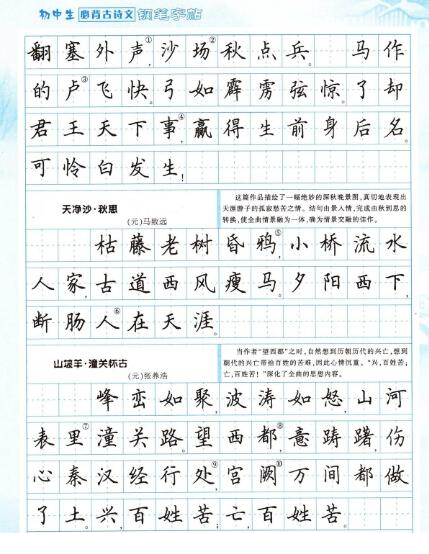 初中生 必背古诗文 钢笔字帖
翻塞外声①，沙场②秋点兵。 马作
的卢③飞快，弓如霹雳弦惊。了却
君王天下事④，赢得生前身后名。
可怜白发生！
天净沙·秋思
（元）马致远
这篇作品描绘了一幅绝妙的深秋晚景图，真切地表现出
天涯游子的孤寂愁苦之情。结句由景入情，完成由秋到思的
转换，使全曲情景融为一体，确为情景交融的佳作。
枯藤老树昏鸦⑤，小桥流水
人家，古道西风瘦马。夕阳西下，
断肠人⑥在天涯。
山坡羊·潼关怀古
（元）张养浩
当作者“望西都”之时，自然想到历朝历代的兴亡，想到
朝代的兴亡带给百姓的苦难，因此心情沉重。“兴，百姓苦；
亡，百姓苦！”深化了全曲的思想内容。
峰峦如聚，波涛如怒，山河
表里⑦潼关路。望西都⑧，意踌躇，伤
心秦汉经行处⑨，宫阙⑩万间都做
了土。兴，百姓苦；亡，百姓苦。